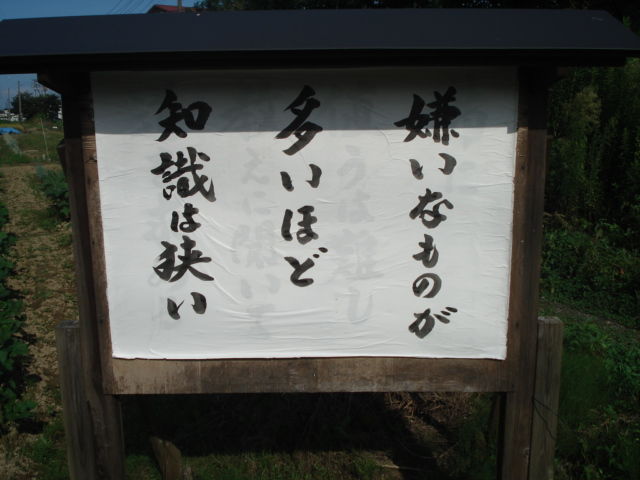 嫌いなものが
多いほど
知識は狭い